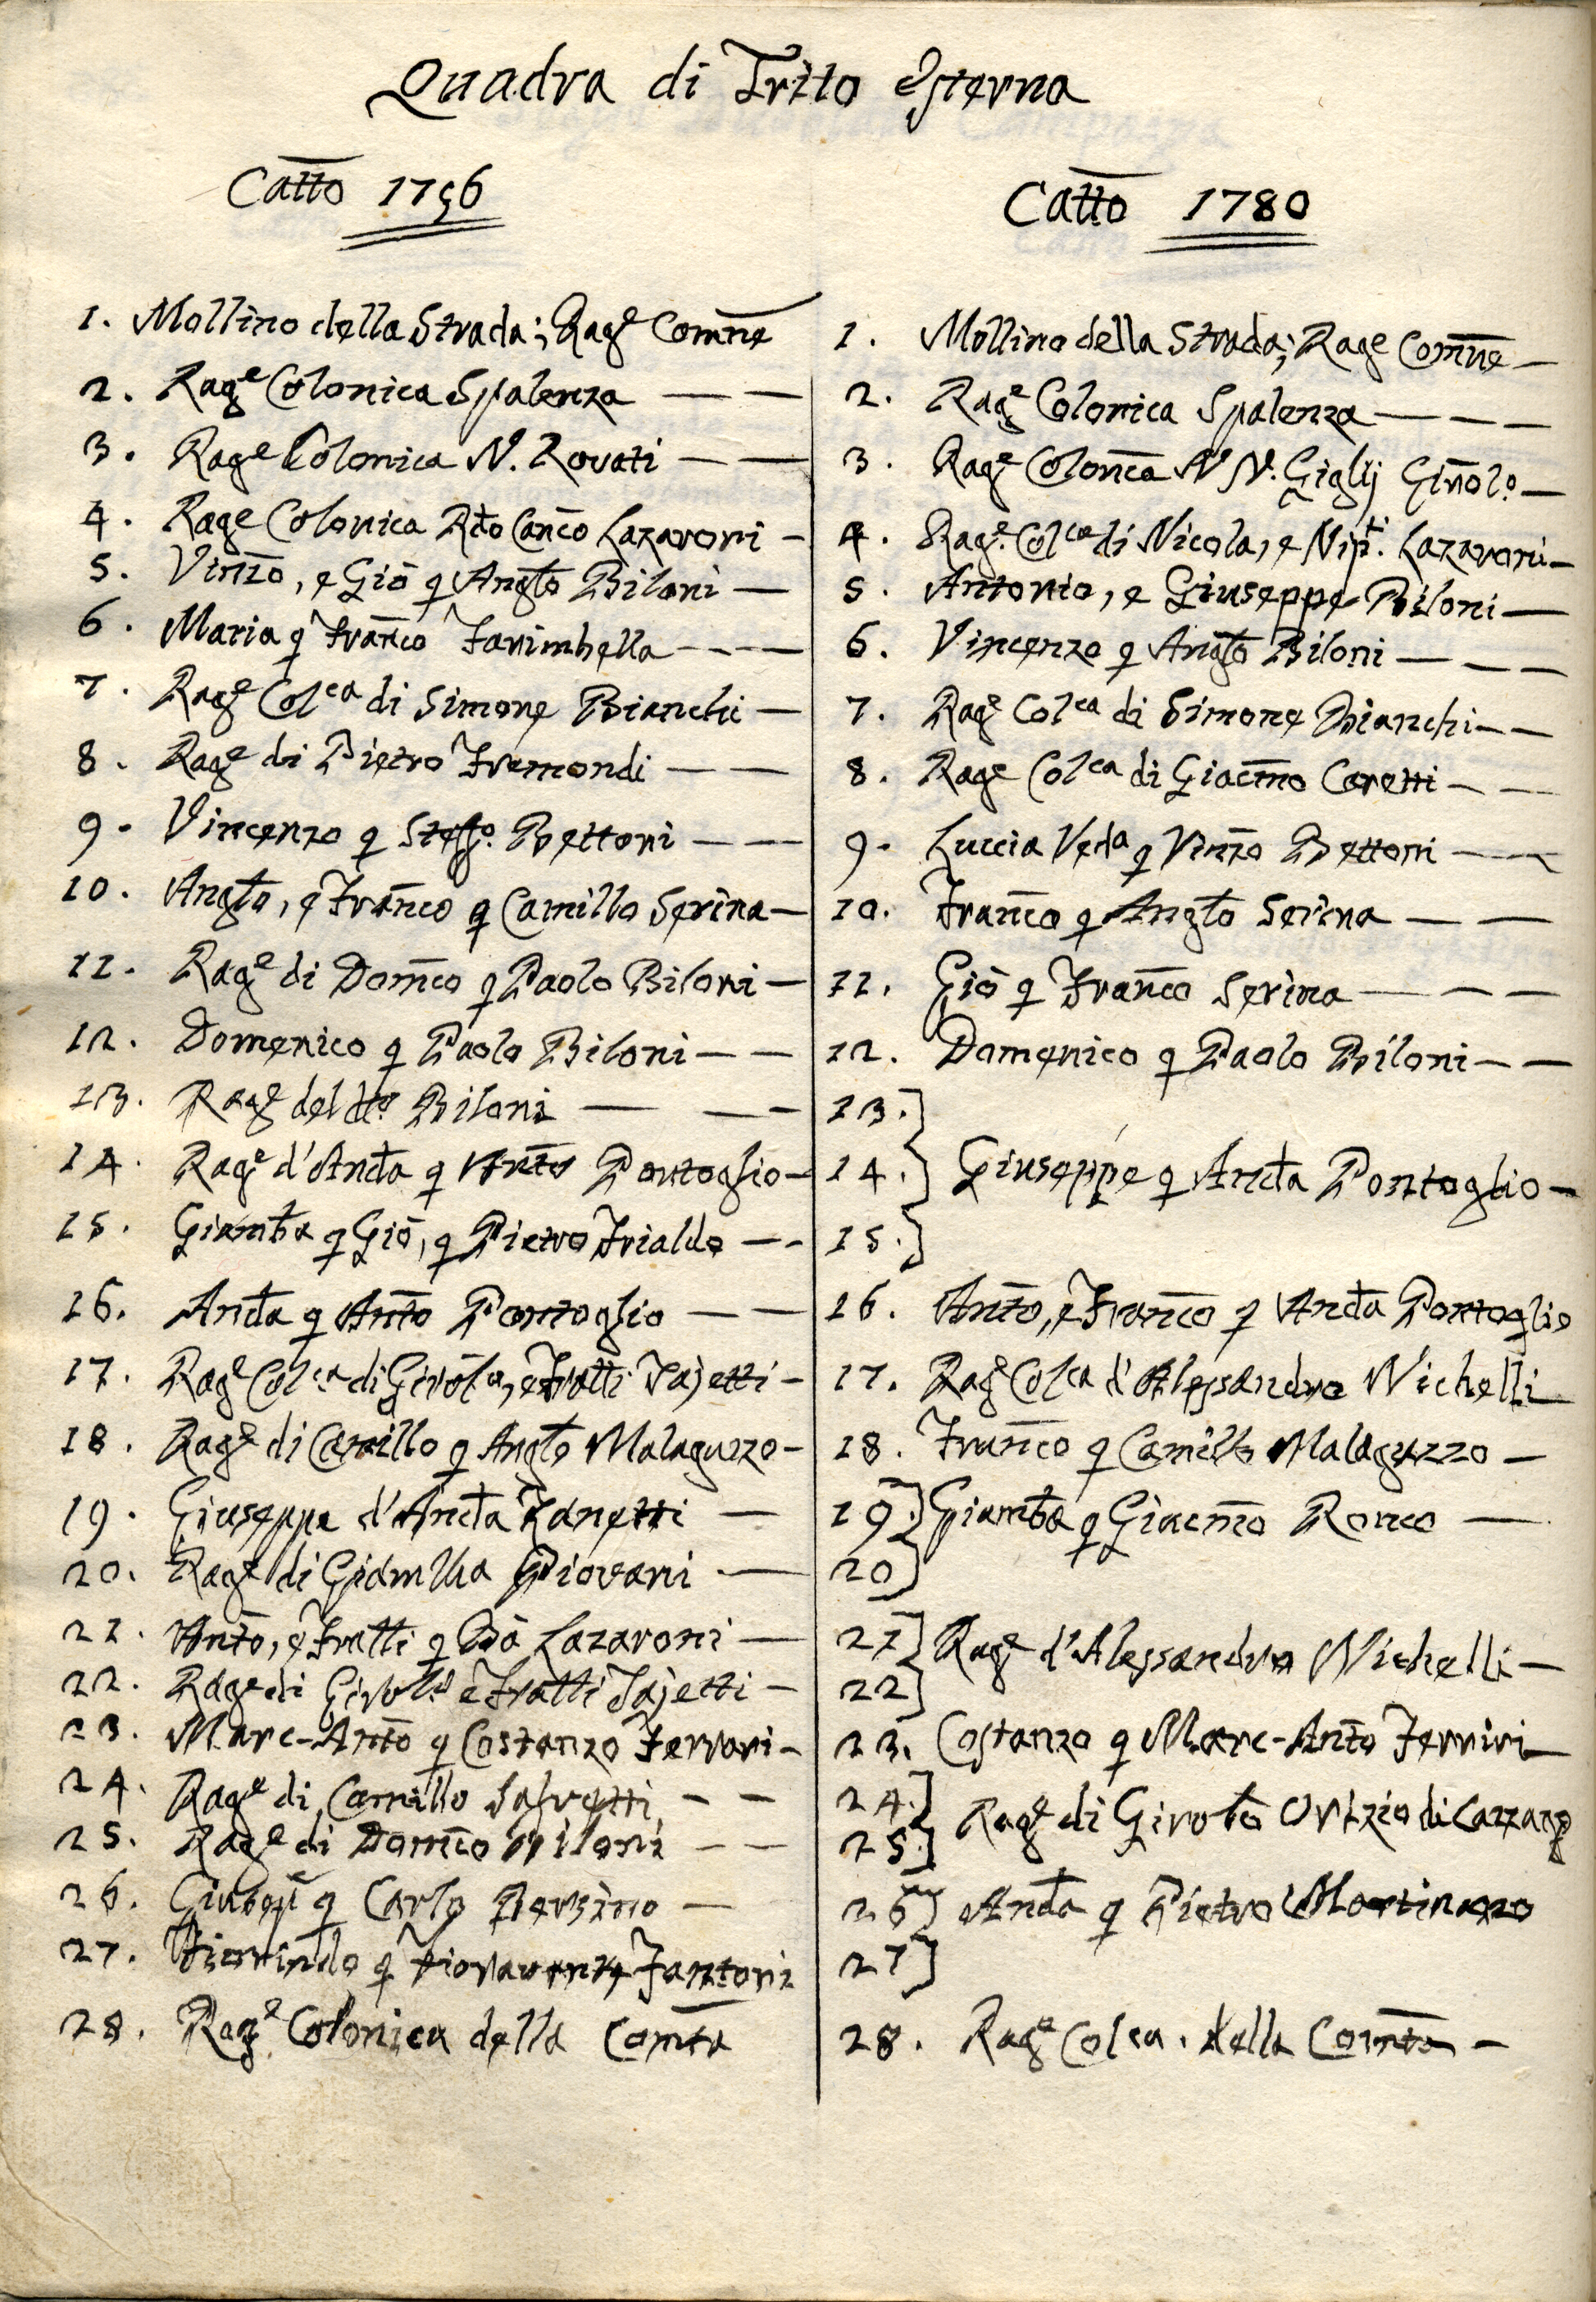 Quadra di Trito Esterna
Catto 1756
1. Mollino della Strada; Rag.e Comne
2. Rag.e Colonica Spalenza
3. Rag.e Colonica N. Rovati
4. Rage Colonica Rdo Canco Lazaroni
5. Vinzo, e Gio q Anglo Biloni
6. Maria q Franco Farimbella
7. Rag.e Colca di Simone Bianchi
8. Rag.e di Pietro Framondi
9. Vincenzo q Steffo. Bettoni
10. Anglo, e Franco q Camillo Serina
11. Rag.e di Domco q Paolo Biloni
12. Domenico q Paolo Biloni
13. Rag.e del dto Biloni
14. Rag.e d'Anda q Anto Pontoglio
15. Giamba q Gio, q Pietro Frialdo
16. Anda q Anto Pontoglio
17. Rag.e Colca di Girola, e Fratti Tajetti
18. Rag.e di Camillo q Anglo Malaguzzo
19. Giuseppe d'Anda Zanetti
20. Rag.e di Piovani
21. Anto, e Fratti q Ba Lazaroni
22. Rage di Girolo e Fratti Tajetti
23. Marc-Anto q Costanzo Ferrari
24. Rag.e di Camillo Salvetti
25. Rag.e di Domco Biloni
26. Giusepe q Carlo Bersino
27. q Fantoni
28. Rag.e Colonica della Comta
Catto 1780
1. Mollino della Strada; Rage Comne
2. Rag.e Colonica Spalenza
3. Rag.e Colonca N N. Giglij
4. Rag.e Colca di Nicola, e Nipti. Lazaroni
5. Antonio, e Giuseppe Biloni
6. Vincenzo q Anglo Biloni
7. Rag.e Colca di Simone Bianchi
8. Rage Colca di Giacmo Caretti
9. Luccia Veda q Vinzo Bettoni
10. Franco q Anglo Serina
11. Gio q Franco Serina
12. Domenico q Paolo Biloni
13.]
14.] Giuseppe q Anda Pontoglio
15.]
16. Anto, e Franco q Anda Pontoglio
17. Rag.e Colca d'Alessandro Nichelli
18. Franco q Camillo Malaguzzo
19.] Giamba q Giacmo Ronco
20]
21] Rag.e d'Alessandro Nichelli
22]
23. Costanzo q Marc-Anto Ferrari
24.] Rag.e di Girolo Orizio di Cazzago
25.]
26] Anda q Pietro Martinazzo
27]
28. Rag.e Colca. della Comta